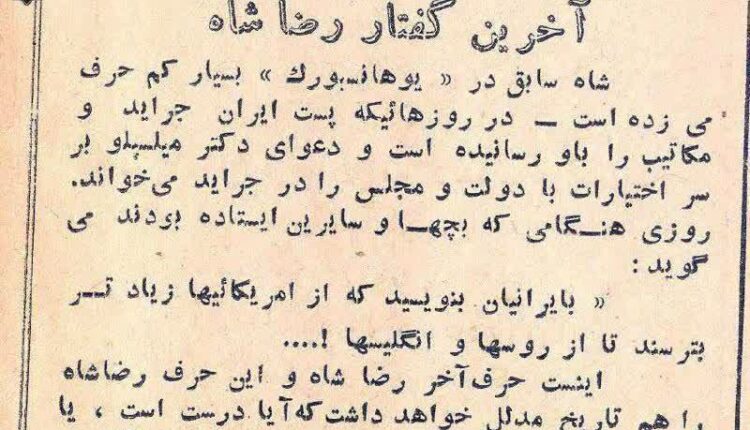 آخرین گفتار رضا شاه
شاه سابق در « یوهانسبورك » بسیار کم حرف
می زده است ـ در روزهائیکه پست ایران جراید و
مکاتیب را باو رسانیده است و دعوای دکتر میلسپو بر
سر اختیارات با دولت و مجلس را در جراید می‌خواند.
روزی هنـگامی که بچهـا و سایرین ایستاده بودند می
گوید :
« بایرانیان بنویسید که از امریکائیها زیاد تـر
بترسند تا از روسها و انگلیسها !....
اینست حرف آخر رضا شاه و این حرف رضاشاه
را هم تاریخ مدلل خواهد داشت که آیا درست است ، یا